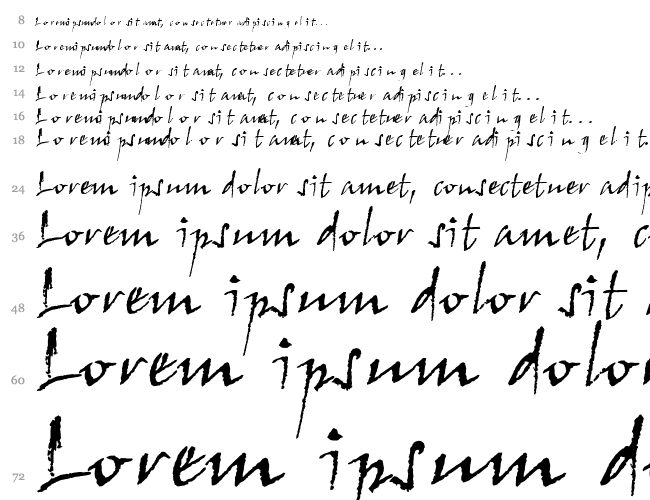 8 Lorem ipsum dolor sit amet, consectetuer adipiscing elit...
10 Lorem ipsum dolor sit amet, consectetuer adipiscing elit...
12 Lorem ipsum dolor sit amet, consectetuer adipiscing elit...
14 Lorem ipsum dolor sit amet, consectetuer adipiscing elit...
16 Lorem ipsum dolor sit amet, consectetuer adipiscing elit...
18 Lorem ipsum dolor sit amet, consectetuer adipiscing elit.
24 Lorem ipsum dolor sit amet, consectetuer adip
36 Lorem ipsum dolor sit amet, c
48 Lorem ipsum dolor sit
60 Lorem ipsum dolo
72 Lorem ipsum d